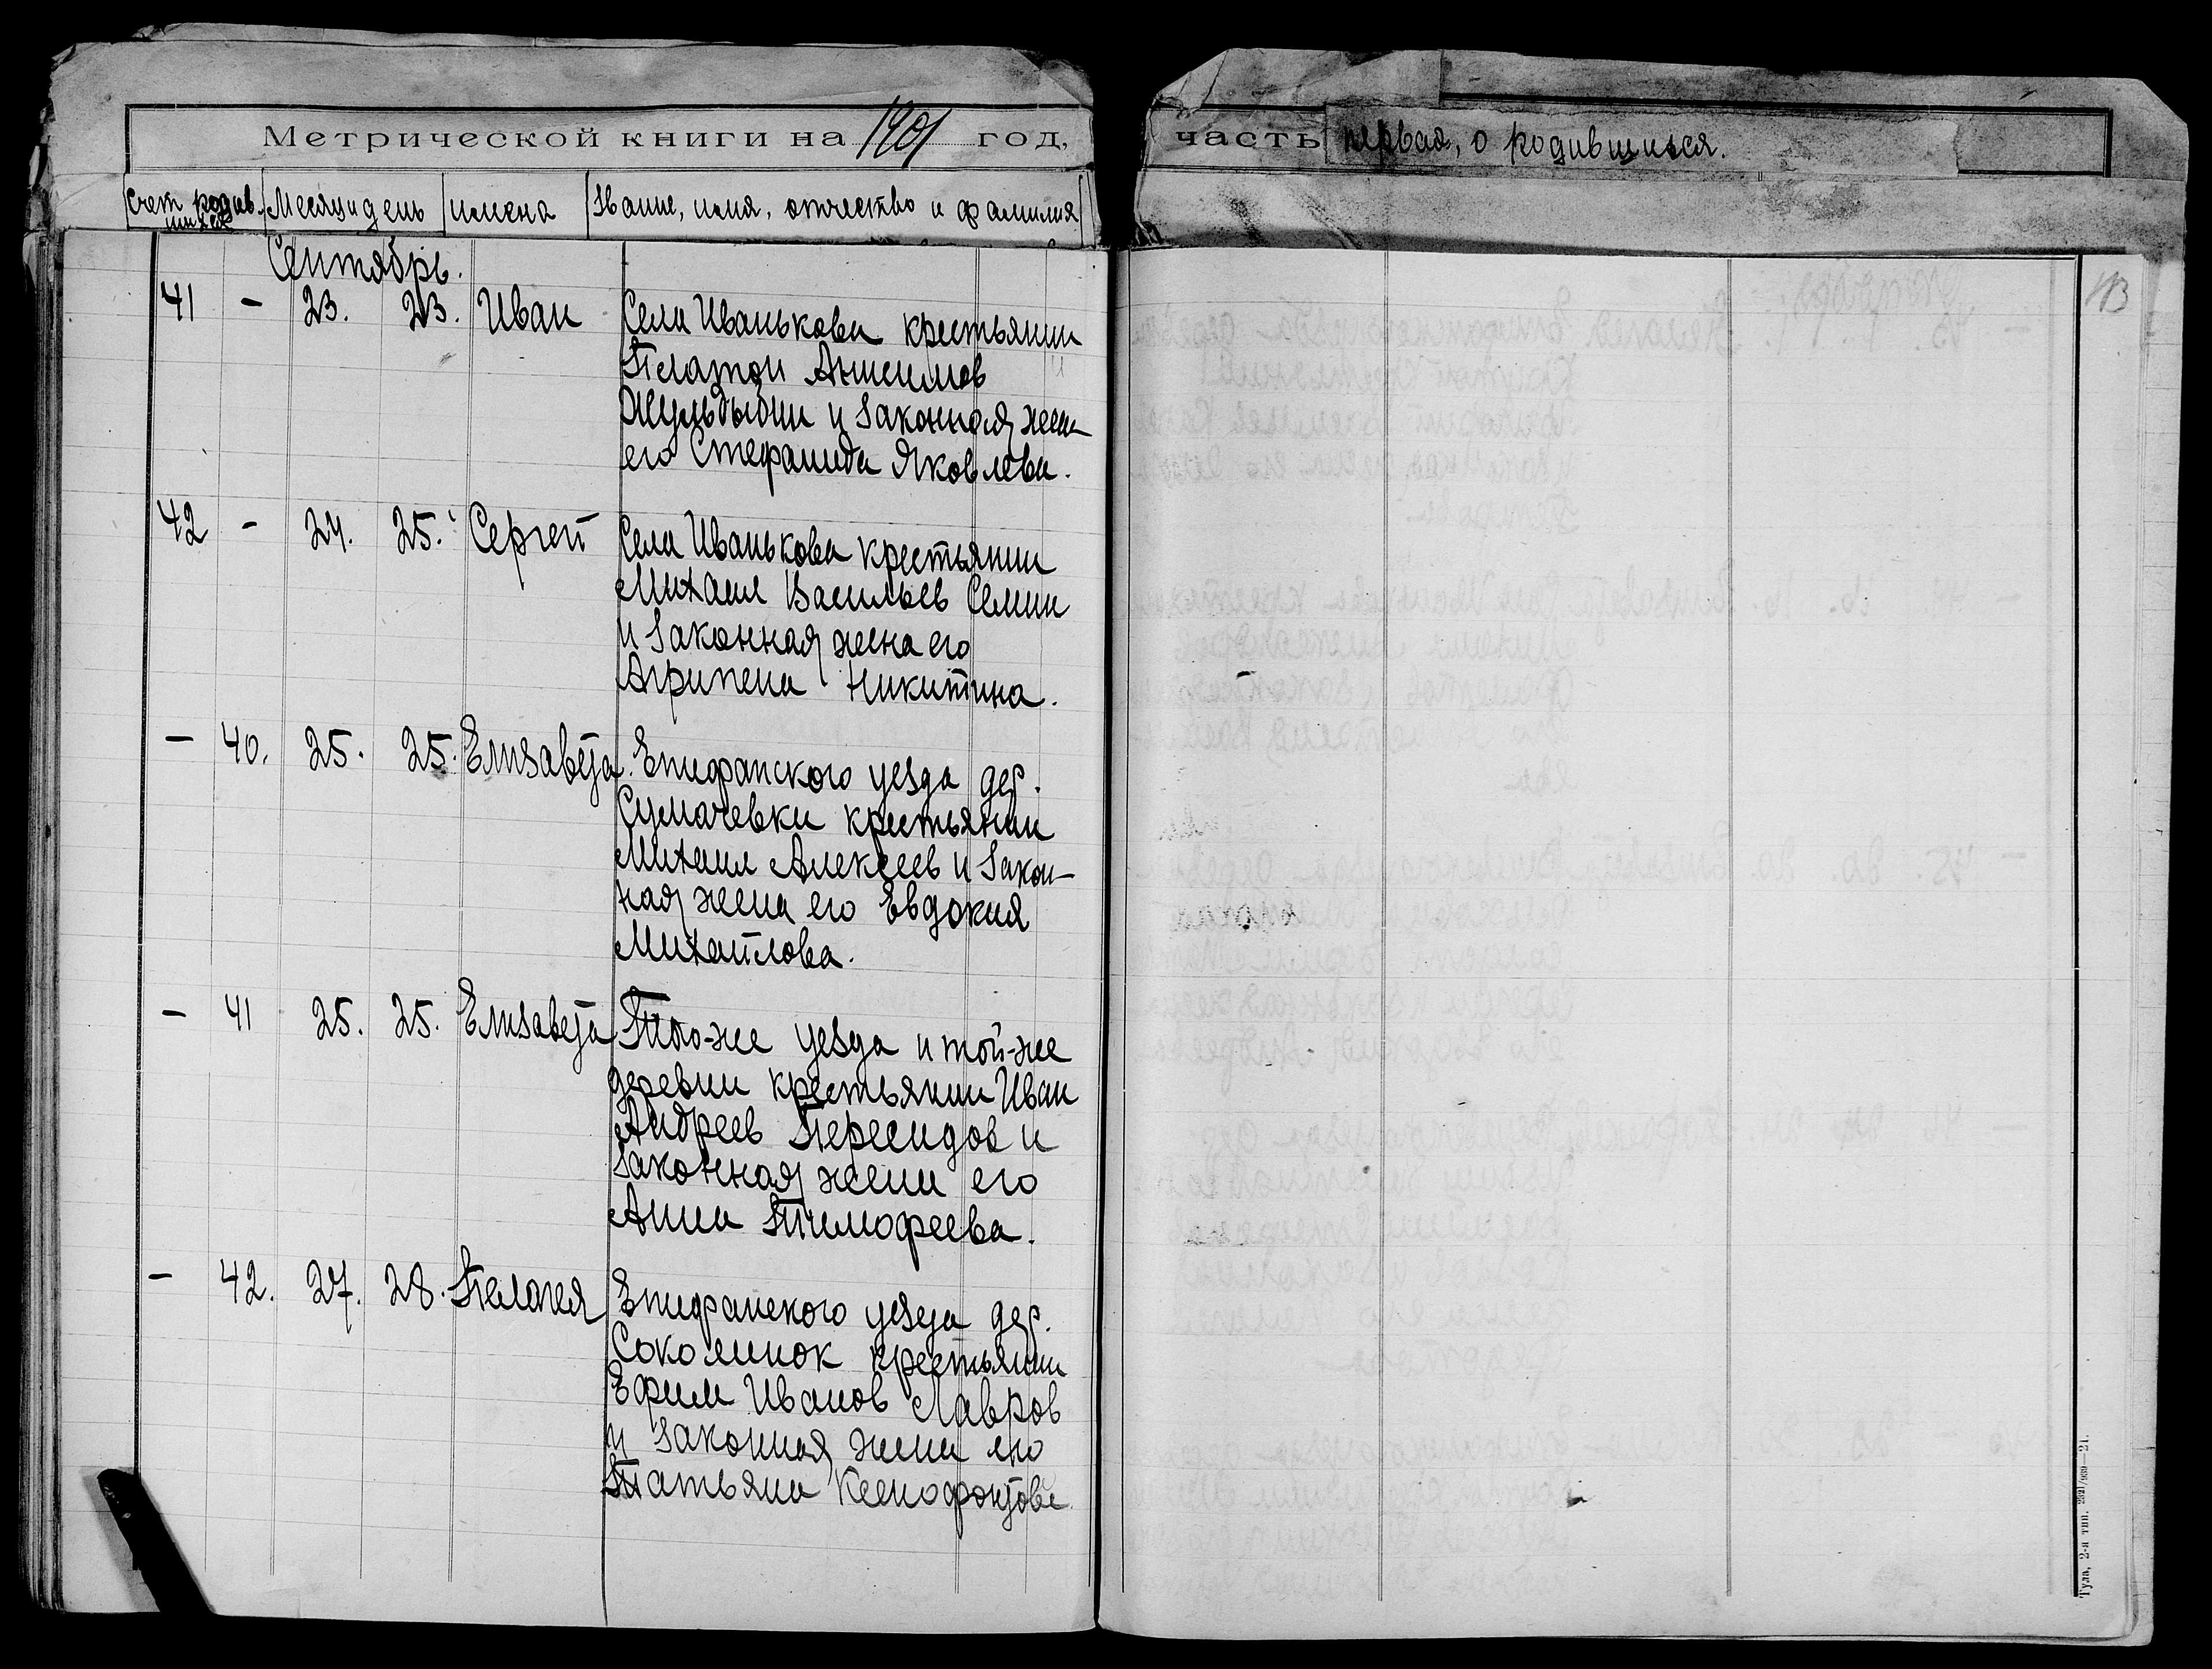 Метрической книги на 1901 год,
часть первая, о родившихся.
Счет родив
шихся
Месяц и день
имена
Звание, имя, отчество и фамилия
Сентябрь.
41 - 23. 23. Иван
Села Иванькова крестьянин
Платон Анисимов
и законная жена
его Стефанида Яковлева.
42 - 24. 25. Сергей
Села Иванькова крестьянин
Михаил Васильев Семин
и законная жена его
Агрипена Никитина.
- 40. 25. 25. Елизавета.
Епифанского уезда дер.
Сумачевки крестьянин
Михаил Алексеев и закон-
ная жена его Евдокия
Михайлова.
- 41 25. 25. Елизавета
Того-же уезда и той-же
деревни крестьянин Иван
Андреев Пересидов и
законная жена его
Анна Тимофеева.
- 42. 27. 28. Пелагея
Епифанского уезда дер.
Соколинок крестьянин
Ефим Иванов Лавров
и законная жена его
Татьяна Ксенофонтова
43
Тула, 2-я тип. 2821/939—21.